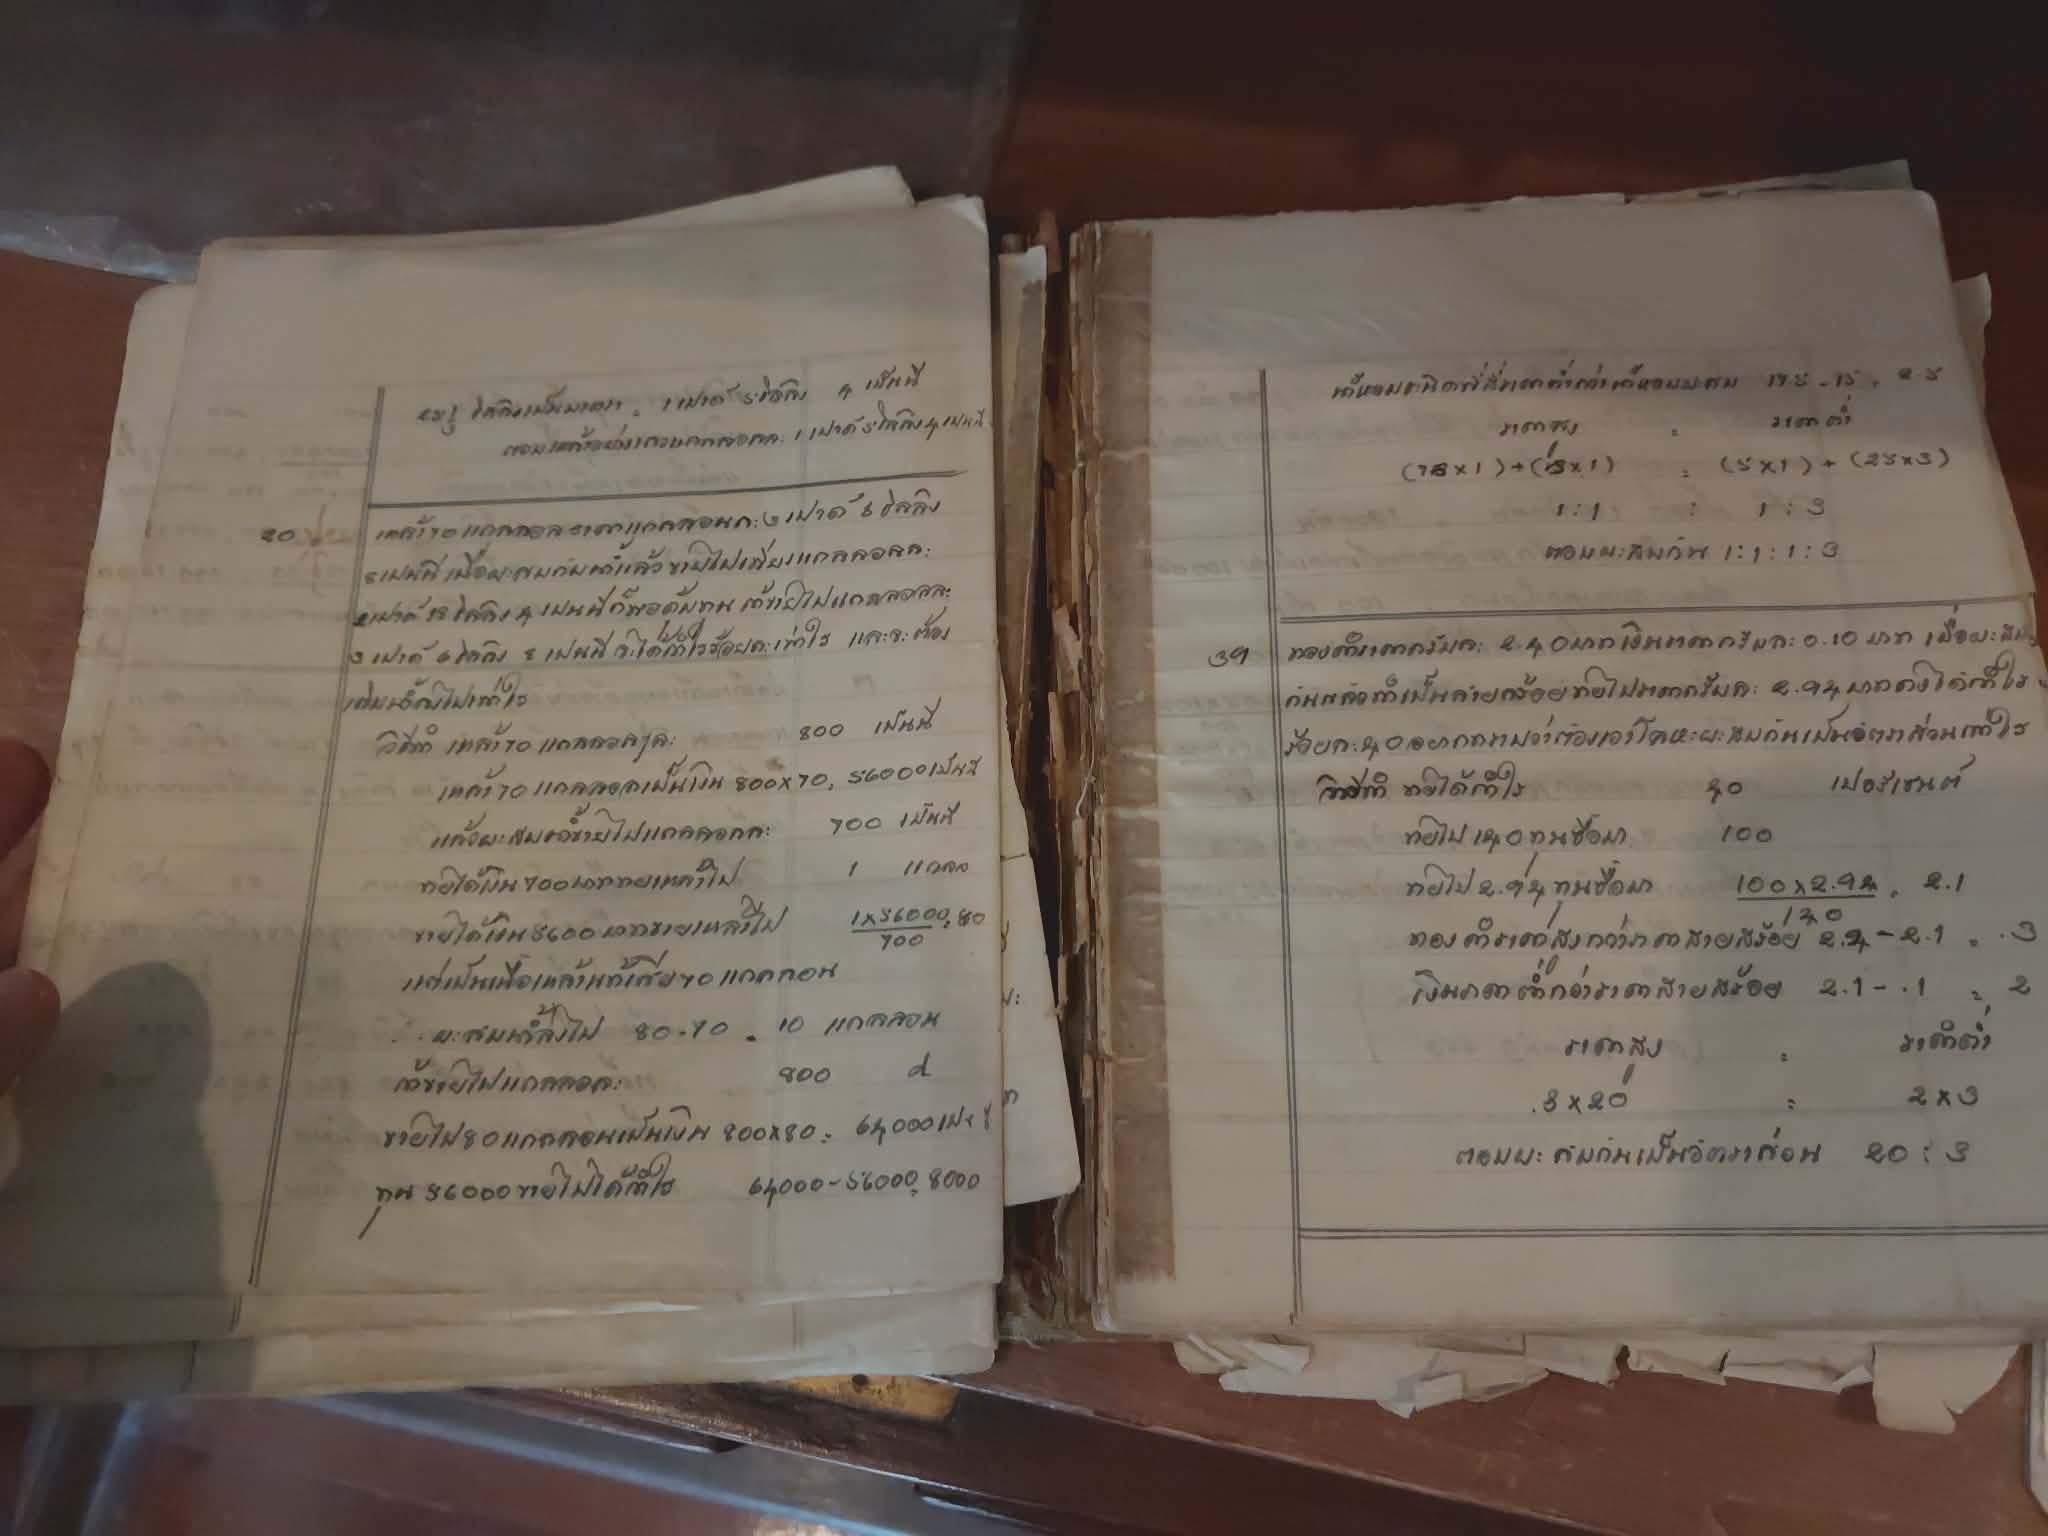 25 1/3 ชิลลิงเป็นมาตรา = 1 เปาด์ 5 ชิลลิง 4 เป็นนี
ตอบเหล้าอย่างเลวแกลลอนละ 1 เปาด์ 5 ชิลลิง 4 เปนนี
20 เหล้า 70 แกลลอน ราคาแกลลอนละ 3 เปาด์ 6 ชิลลิง
8 เปนนี เมื่อผะสมกับน้ำแล้วขายไปเพียงแกลลอนละ
2 เปาด์ 18 ชิลลิง 4 เปนนี ก็พอดีทุน ถ้าขายไปแกลลอนละ
3 เปาด์ 6 ชิลลิง 8 เปนนี จะได้กำไรร้อยละเท่าไร และจะต้อง
เติมน้ำลงไปเท่าไร
วิธีทำ เหล้า 70 แกลลอน ๆ ละ 800 เป็นนี
เหล้า 70 แกลลอนเป็นเงิน 800×70 = 56000 เป็นนี
แล้วผะสมน้ำขายไปแกลลอนละ 700 เป็นนี
ขายได้เงิน 700 บาทขายเหล้าไป 1 แกลลอน
ขายได้เงิน 5600 บาทขายเหล้าไป 1×56000/700 = 80
แต่เป็นเนื้อเหล้าแท้เสีย 70 แกลลอน
∴ ผะสมน้ำลงไป 80-70 = 10 แกลลอน
ถ้าขายไปแกลลอนละ 800 d
ขายไป 80 แกลลอนเป็นเงิน 800×80 = 64000 เปนนี
ทุน 56000 ขายไปได้กำไร 64000-56000 = 8000
น้ำหอมชนิดที่สี่ราคาต่ำกว่าน้ำหอมผะสม 17.5-15 = 2.5
ราคาสูง = ราคาต่ำ
1:1 : 1:3
ตอบผะสมกัน 1:1:1:3
39 ทองคำราคากรัมละ 2.40 บาท เงินราคากรัมละ 0.10 บาท เมื่อผะสม
กันแล้วทำเป็นสายสร้อยขายไปราคากรัมละ 2.94 บาทดังได้กำไร
ร้อยละ 40 อยากทราบว่าต้องเอาโลหะผะสมกันเป็นอัตราส่วนเท่าไร
วิธีทำ ขายได้กำไร 40 เปอรเซนต์
ขายไป 140 ทุนซื้อมา 100
ขายไป 2.94 ทุนซื้อมา 100×2.94/140 = 2.1
ทองคำราคาสูงกว่าราคาสายสร้อย 2.4-2.1 = .3
เงินราคาต่ำกว่าราคาสายสร้อย 2.1-.1 = 2
ราคาสูง = ราคาต่ำ
.3×20 = 2×3
ตอบผะสมกันเป็นอัตราส่วน 20:3